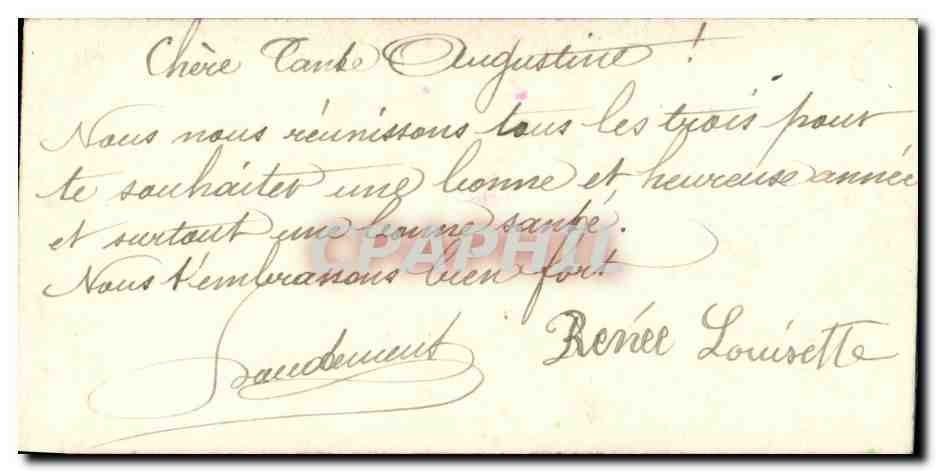 Chère Tante Augustine !
Nous nous réunissons tous les trois pour
te souhaiter une bonne et heureuse année
et surtout une bonne santé.
CPAPHIL
Nous t'embrassons bien fort
Renée Louisette